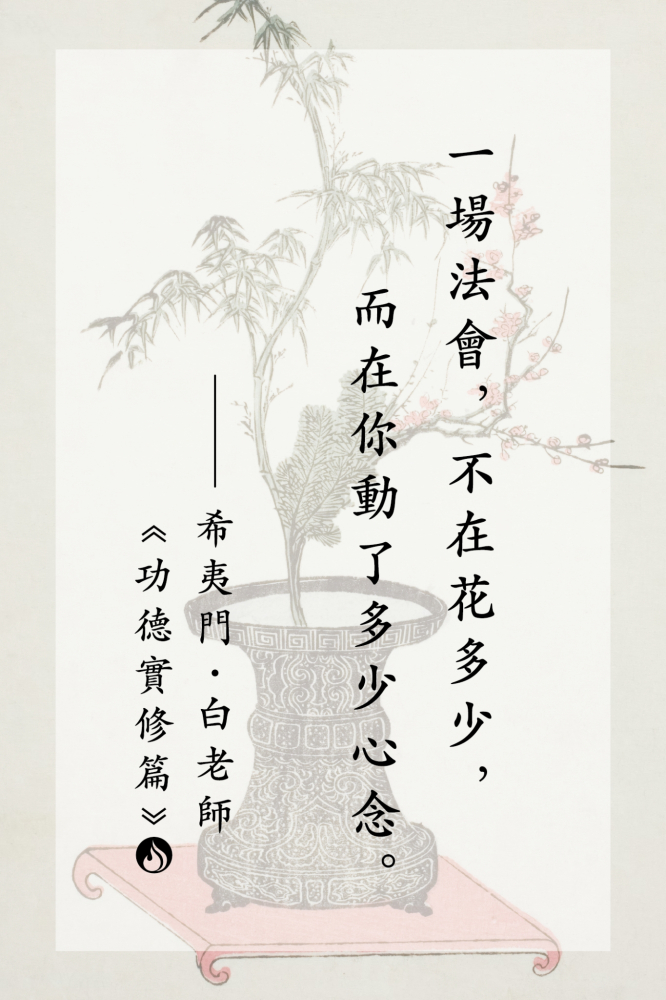 一場法會，不在花多少，
而在你動了多少心念。
——希夷門·白老師
《功德實修篇》